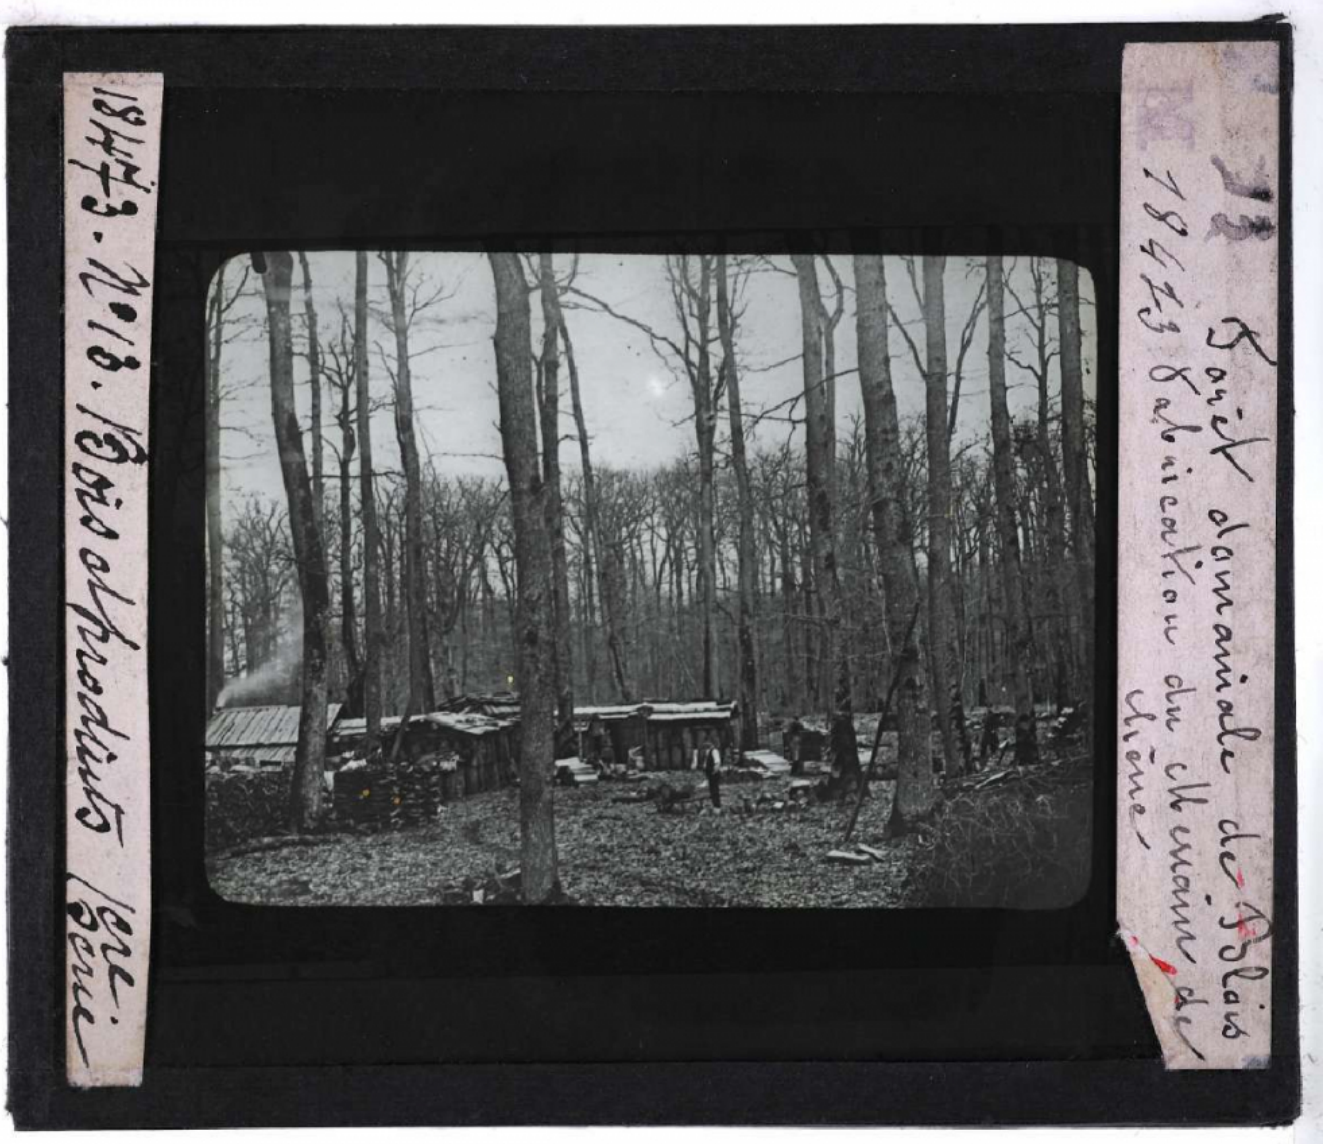 18473. N° 13. Bois et produits 1ere
Serie
13
Forêt domaniale de Blois
M
18473 Fabrication du Merrain de
chêne